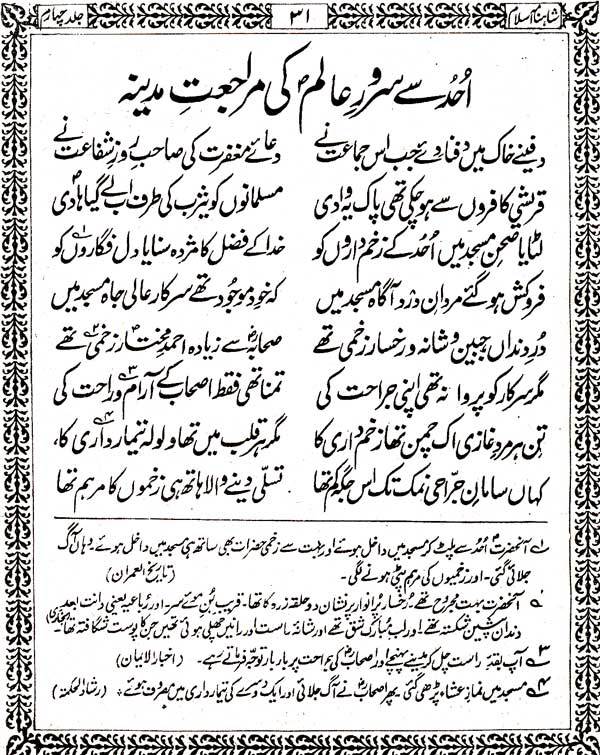 شاہنامۂ اسلام
۳۱
جلد چہارم
اُحُد سے سرورِ عالمؐ کی مراجعتِ مدینہ
دفینے خاک میں دفنا دئے جب اس جماعت نے
دعائے مغفرت کی صاحبِ روزِ شفاعت نے
قریشی کافروں سے ہو چکی تھی پاک یہ وادی
مسلمانوں کو یثرب کی طرف اب لے گیا ہادی
لٹایا صحنِ مسجد میں اُحُد کے زخم داروں کو
خدا کے فضل کا مژدہ سنایا دل فگاروں کو
فروکش ہو گئے مردانِ درد آگاہ مسجد میں
کہ خود موجود تھے سرکارِ عالی جاہ مسجد میں
دُرِ دنداں جبین و شانہ و رخسار زخمی تھے
صحابہؓ سے زیادہ احمدِ مختارؐ زخمی تھے
مگر سرکار کو پروا نہ تھی اپنی جراحت کی
تمنا تھی فقط اصحاب کے آرام و راحت کی
تنِ ہر مردِ غازی اک چمن تھا زخم داری کا
مگر ہر قلب میں تھا ولولہ تیمارداری کا،
کہاں سامانِ جراحی نمک تک اس جگہ کم تھا
تسلی دینے والا ہاتھ ہی زخموں کا مرہم تھا
۱ آنحضرتؐ اُحُد سے پلٹ کر مسجد میں داخل ہوئے اور بہت سے زخمی حضرات بھی ساتھ ہی مسجد میں داخل ہوئے۔ وہاں آگ
جلائی گئی۔ اور زخمیوں کی مرہم پٹی ہونے لگی۔ (تاریخ العمران)
۲ آنحضرت بہت مجروح تھے۔ رُخسارِ پُرانوار پر نشان دو حلقہ زرہ کا تھا۔ قریب بُنِ موئے سر۔ اور رُباعیہ یعنی دانت بعد
دندانِ پیشین شکستہ تھے اور لبِ مُبارک شق تھے اور شانہ راست اور رانیں چھلی ہوئی تھیں جن کا پوست شگافتہ تھا۔
۳ آپ بقدر راست چل کر مدینے پہنچے اور اصحابؓ کی جراحت پر بار بار توجّہ فرماتے رہے۔ (اخبار الاعیان)
۴ مسجد میں نمازِ عشاء پڑھی گئی پھر اصحابؓ نے آگ جلائی اور ایک دوسرے کی تیمارداری میں مصروف ہوئے (رشاد الحکمۃ)